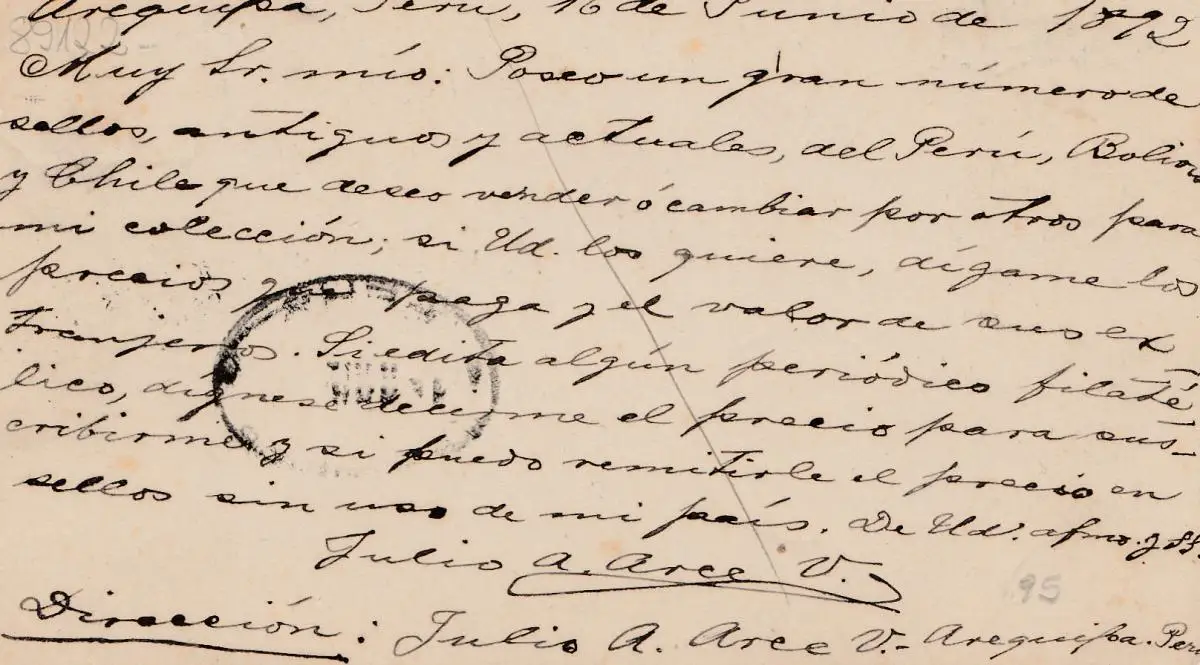 Arequipa, Perú, 16 de Junio de 1892
89122-
Muy Sr. mío: Poseo un gran número de
sellos, antiguos y actuales, del Perú, Bolivia
y Chile que deseo vender ó cambiar por otros para
mi colección; si Ud. los quiere, dígame los
precios que paga y el valor de sus ex
tranjeros. Si edita algún periódico filaté
lico, dígnese decirme el precio para sus-
cribirme y si puedo remitirle el precio en
sellos sin uso de mi país. De Ud. afmo. y SS.
Julio A. Arce V.
95
Dirección: Julio A. Arce V.- Arequipa. Perú